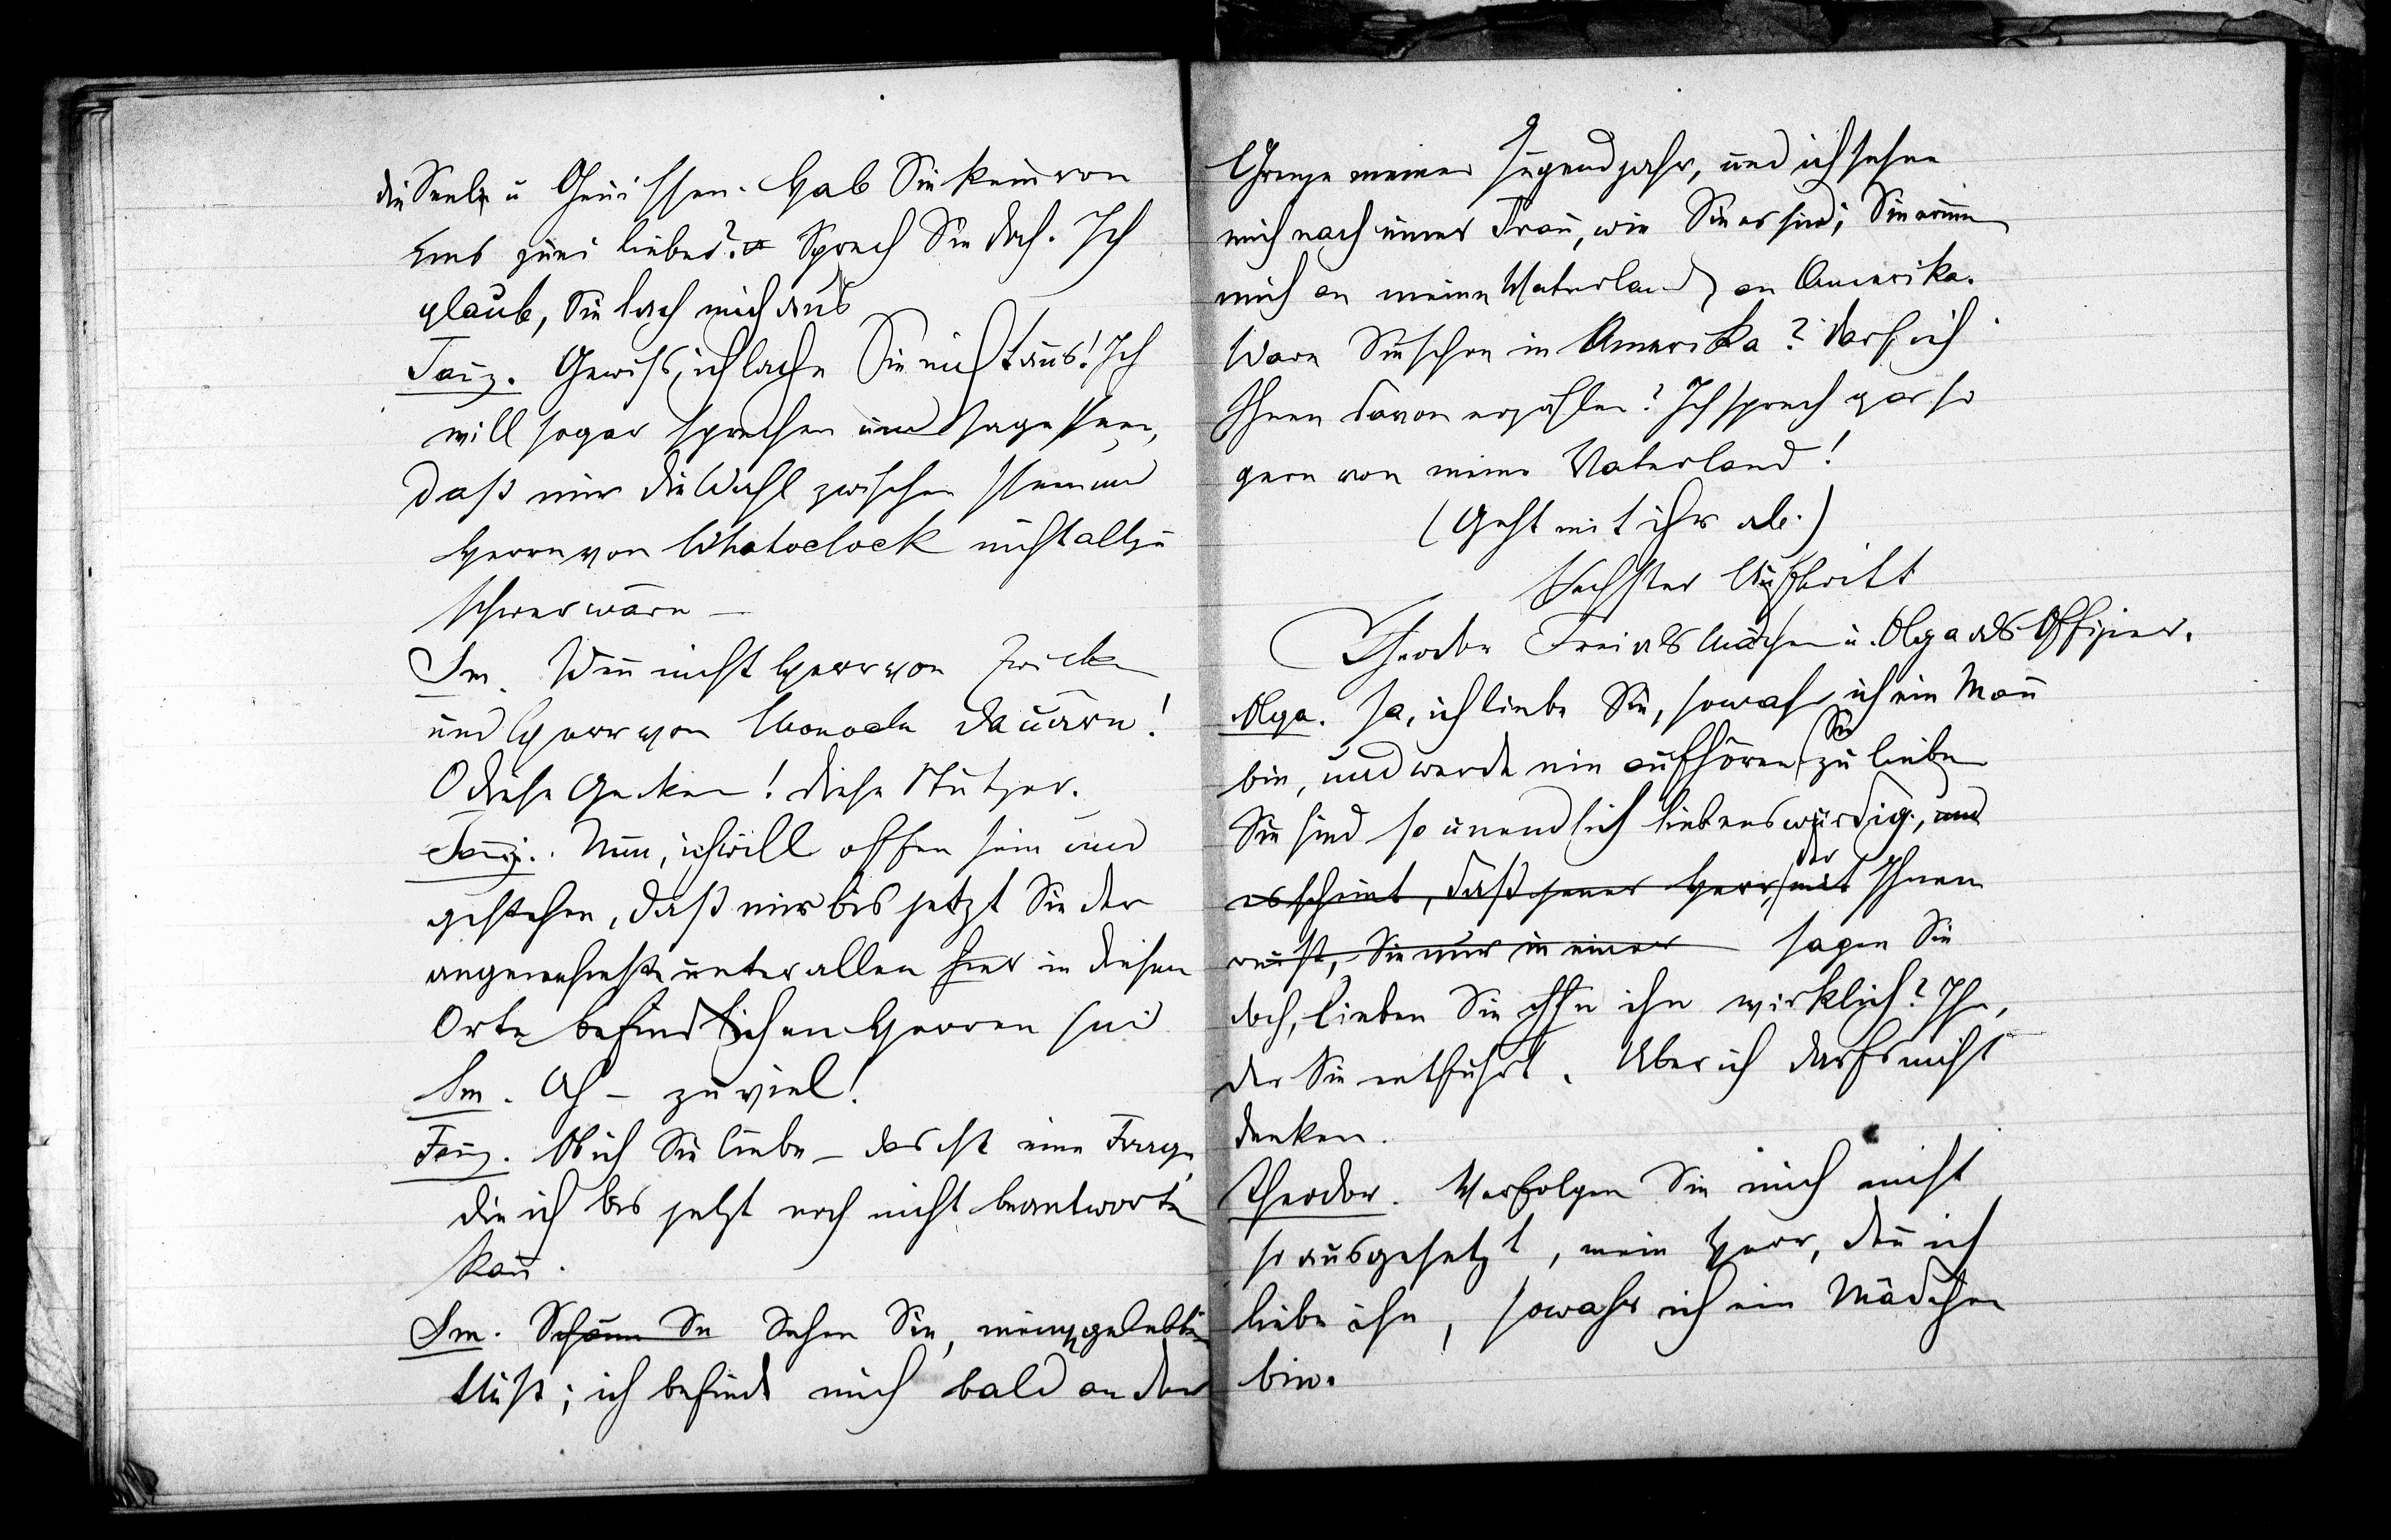 die Seele u Gewissen. Hab Sie kein von
uns zwei lieber? Sprech Sie doch. Ich
glaub, Sie lach mich aus
Fanz. Gewiß, ich lache Sie nicht aus! Ich
will sogar sprechen und sagen Ihnen,
daß mir die Wahl zwischen Ihnen und
Herrn von Whatoclock nicht allzu
schwer wäre —
Sm. Wenn nicht Herr von Zwickn
und Herr von Monocle da wären!
O diese Gecken! diese Stutzer.
Fanz. Nun, ich will offen sein und
gestehen, daß mir bis jetzt Sie der
angenehmste unter allen hier in diesem
Orte befindlichen Herren sind
Sm. Ah — zu viel!
Fanz. Ob ich Sie liebe — das ist eine Frage,
die ich bis jetzt noch nicht beantworten
kann.
Sm. Sehen Sie, meine
ich befinde mich bald an der
Grenze meiner Jugendjahr, und ich sehne
mich nach einer Frau, wie Sie es sind; Sie erinnern
mich an meine Vaterland, an Amerika.
Ware Sie schon in Amerika? Darf ich
Ihnen davon erzählen? Ich sprech gar so
gern von meine Vaterland!
(Geht mit ihr ab.)
Sechster Auftritt
Theodor Frei als Mädchen u. Olga als Offizier.
Olga. Ja, ich liebe Sie, sowahr ich ein Mann
bin, und werde nie aufhören Sie zu lieben
Sie sind so unendlich liebenswürdig, und
es scheint, daß jener Herr, der mit Ihnen
reist, Sie nur in einer sagen Sie
doch, lieben Sie ihn wirklich? Ihn,
der Sie entführt. Aber ich darfs nicht
denken.
Theodor. Verfolgen Sie mich nicht
so ausgesetzt, mein Herr, denn ich
liebe ihn, sowahr ich ein Mädchen
bin.